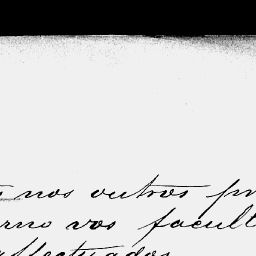 nos outros pr
rno vos facult
affectuados